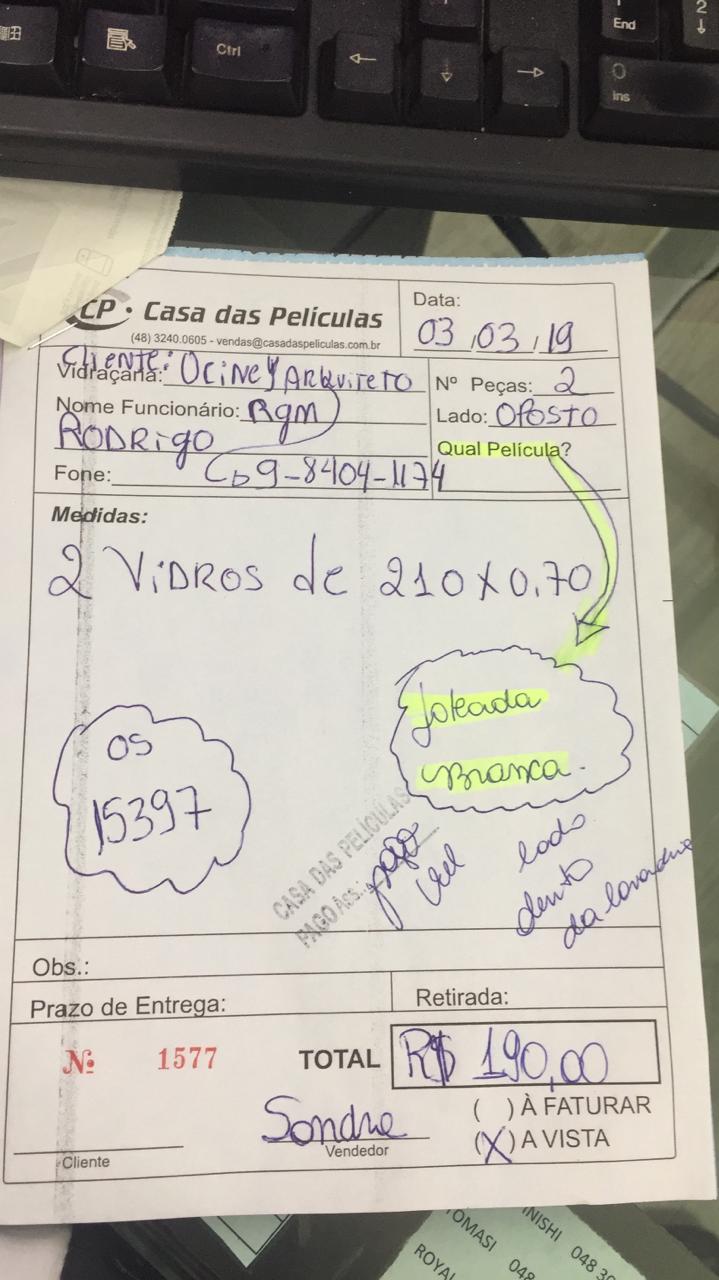 Ctrl
End
2
0
Ins
CP · Casa das Películas
(48) 3240.0605 - vendas@casadaspeliculas.com.br
Data:
03,03,19
Cliente:
Vidraçaria: Ociney Arquiteto
Nome Funcionário: Rgm
Rodrigo
Fone: 9-8404-1174
Nº Peças: 2
Lado: Oposto
Qual Película?
Medidas:
2 Vidros de 210 X 0,70
Joteada
Branca.
OS
15397
CASA DAS PELÍCULAS
PAGO Ass.:
pago
lado
dento
da
Obs.:
Prazo de Entrega:
Retirada:
Nº 1577
TOTAL R$ 190,00
( ) À FATURAR
(X) A VISTA
Sandra
Vendedor
Cliente
TOMASI 048
INISHI 048 30
ROYAL